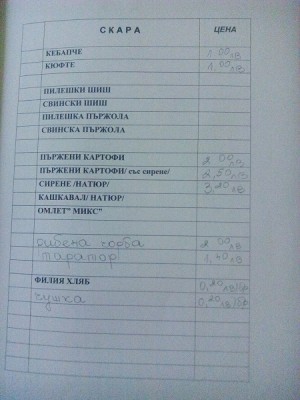 СКАРА ЦЕНА
КЕБАПЧЕ 1,00лв
КЮФТЕ 1,00лв
ПИЛЕШКИ ШИШ
СВИНСКИ ШИШ
ПИЛЕШКА ПЪРЖОЛА
СВИНСКА ПЪРЖОЛА
ПЪРЖЕНИ КАРТОФИ 2,00лв
ПЪРЖЕНИ КАРТОФИ/ със сирене/ 2,50лв
СИРЕНЕ /НАТЮР/ 3,20лв
КАШКАВАЛ/ НАТЮР/
ОМЛЕТ" МИКС"
рибена чорба 2,00лв
таратор 1,40лв
ФИЛИЯ ХЛЯБ 0,20лв/бр
чушка 0,20лв/бр